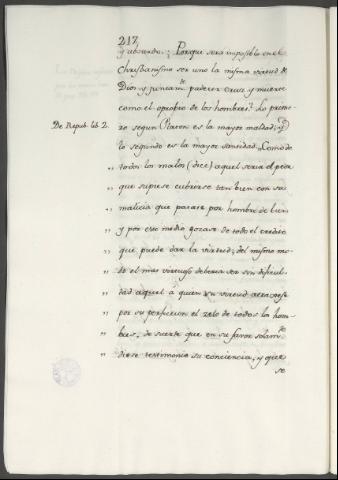 217
y absurdo.; Porque sera imposible en el
Christianismo ser uno la misma virtud de
Dios y juntam.te padecer cruz y muerte
como el oprobrio de los hombres. Lo prime-
De Repub. lib 2.
ro segun Platon es la mayor maldad; y
lo segundo es la mayor santidad. Como de
„ todos los malos (dice) aquel seria el peor
„ que supiese cubrirse tan bien con su
„ malicia que pasase por hombre de bien
„ y por este medio gozase de todo el credito
„ que puede dar la virtud; del mismo mo-
„ do el mas virtuoso deberia ser sin dificul-
„ dad aquel á quien su virtud atraxese
„ por su perfeccion el zelo de todos los hom-
„ bres, de suerte que en su favor solam.te
„ diese testimonio su conciencia, y que
se